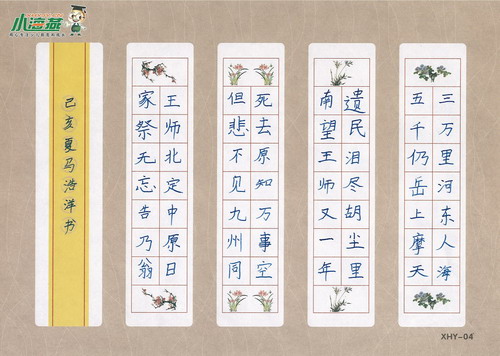 三万里河东人海
五千仍岳上摩天
遗民泪尽胡尘里
南望王师又一年
死去原知万事空
但悲不见九州同
王师北定中原日
家祭无忘告乃翁
己亥夏马浩洋书
XHY-04